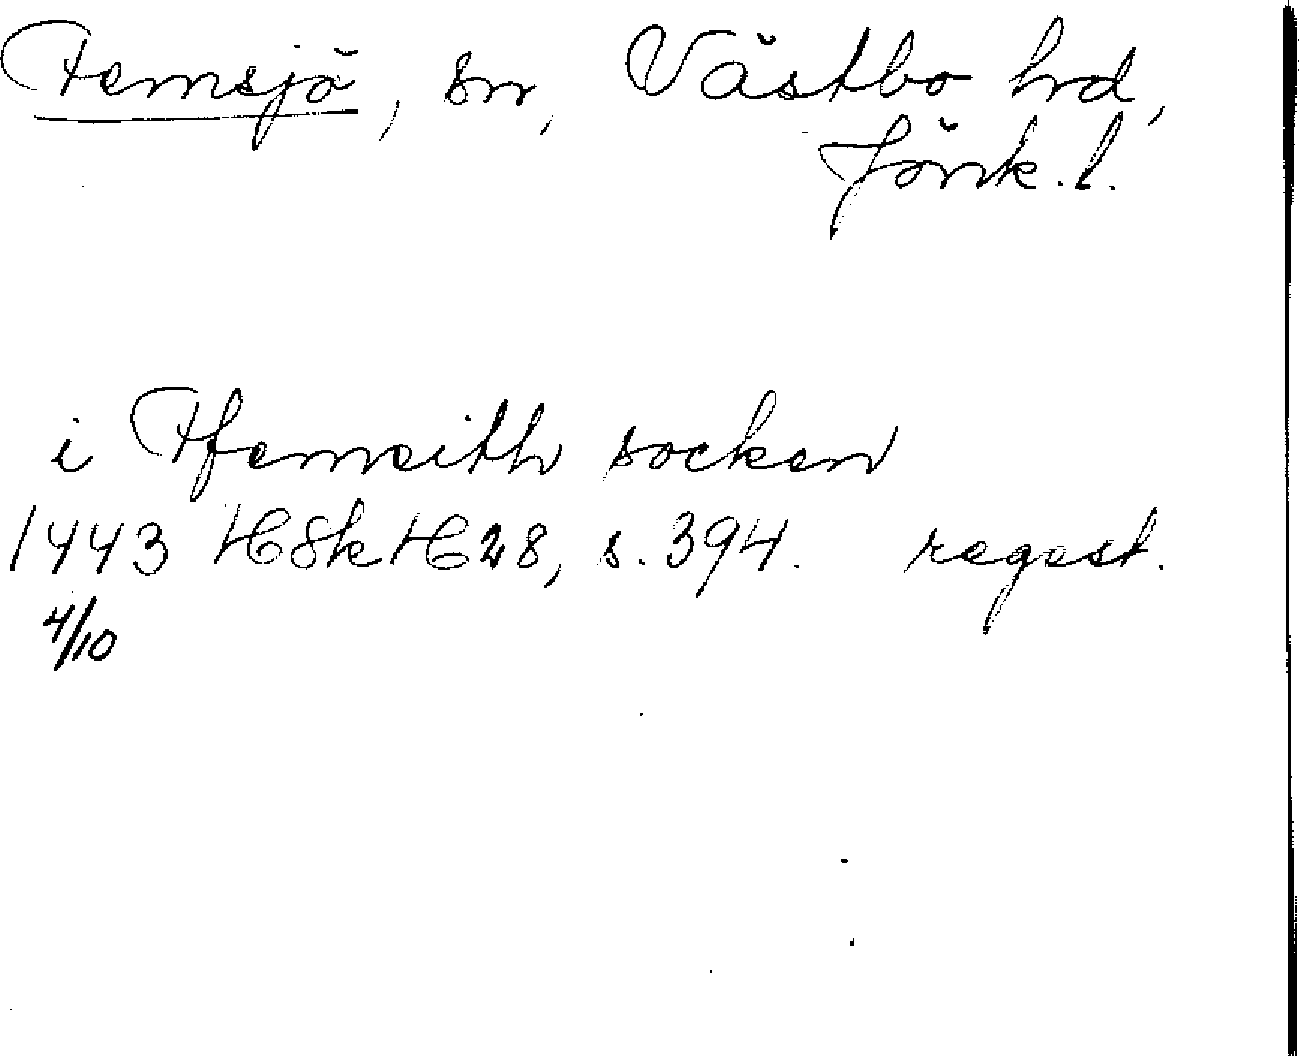 Femsjö, sn, Västbo hd,
Jönk. l.
i Ffemsith socken
1443 HSkH 28, s. 394. regest.
4/10